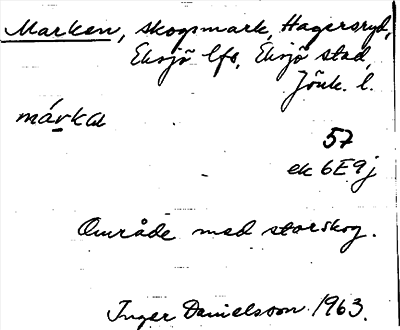 Marken, skogsmark, Hagersryd,
Eksjö lfs, Eksjö stad,
Jönk. l.
márka
57
ek 6E9j
Område med storskog.
Inger Danielsson 1963.